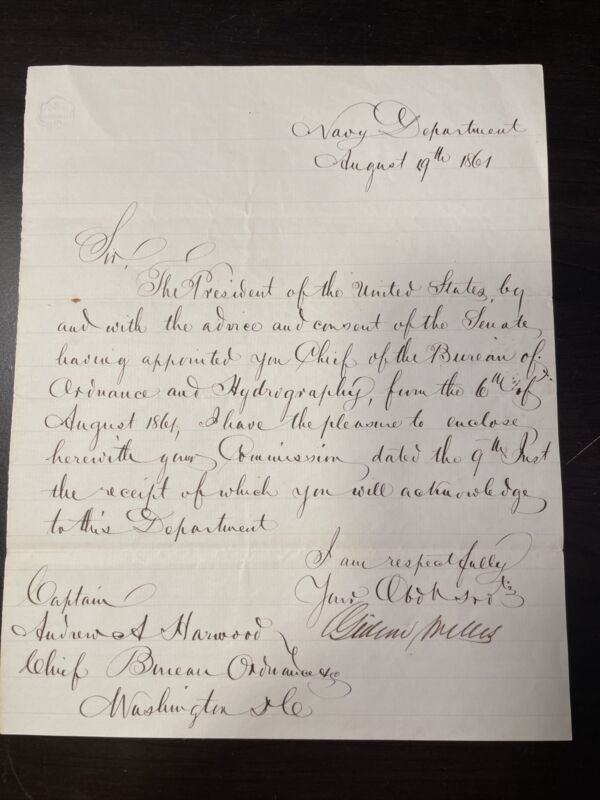 Navy Department
August 19th 1861
Sir,
The President of the United States, by
and with the advice and consent of the Senate,
having appointed you Chief of the Bureau of
Ordnance and Hydrography, from the 6th of
August 1861, I have the pleasure to enclose
herewith your Commission dated the 9th Inst
the receipt of which you will acknowledge
to this Department
I am respectfully
Your Obdt
Gideon Welles
Captain
Andrew A Harwood
Chief Bureau Ordnance &c
Washington D C